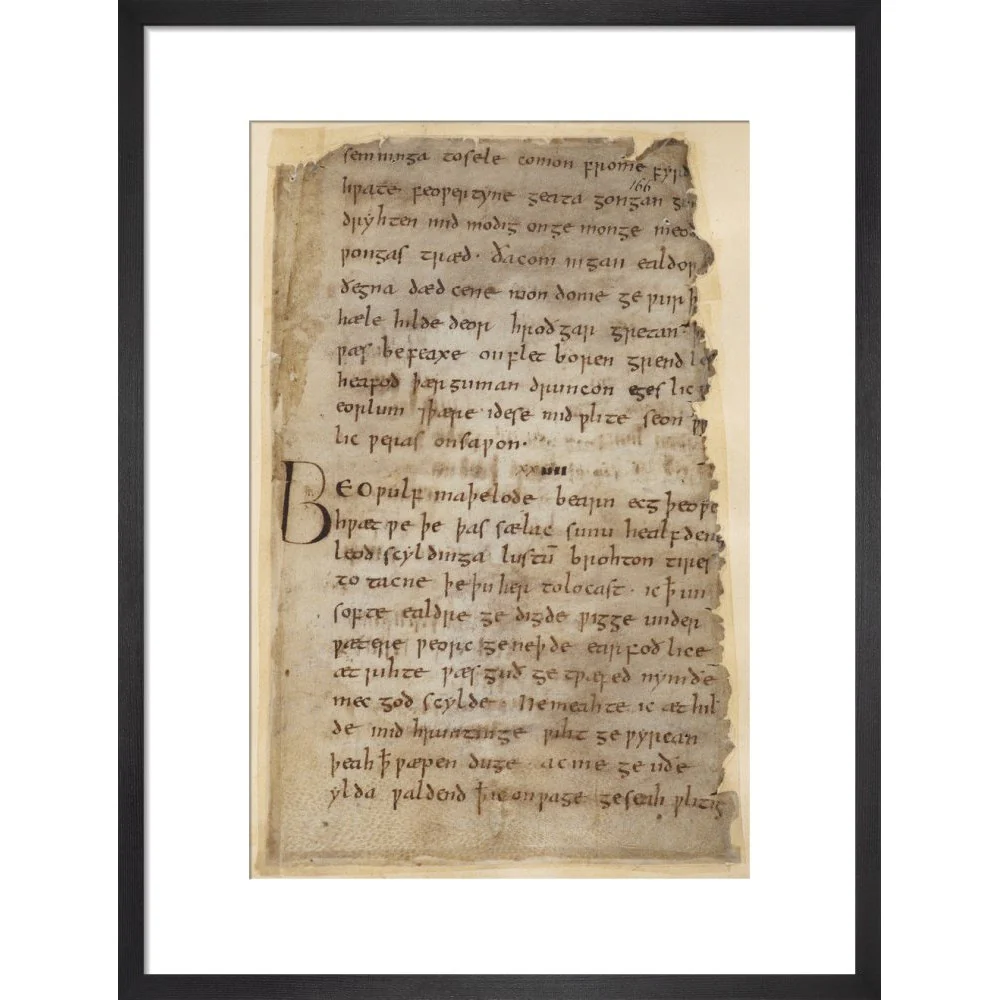 semninga tosele comon frome fyrd
166
hƿate feoƿertyne geata gongan
dryhten mid modig onge monge meo
ƿongas træd· ða com in gan ealdor
ðegna dæd cene mon dome ge ƿurþ
hæle hilde deor hroðgar gretan·
ƿæs be feaxe on flet boren grendles
heafod þær guman druncon egeslic
eorlum ⁊ þære idese mid ƿlite seon
lic ƿeras onsaƿon·
xxiiii
Beoƿulf maþelode bearn ecg þeoƿe
hƿæt ƿe þe þas sælac sunu healfdene
leod scyldinga lustū brohton tires
to tacne þe þu her to locast· ic ꝥ un
softe ealdre ge digde ƿigge under
ƿætere ƿeorc geneþde earfoð lice
æt rihte ƿæs guð ge tƿæfed nymðe
mec god scylde· Ne meahte ic æt hil
de mid hruntinge ƿiht ge ƿyrcan
þeah ꝥ ƿæpen duge· ac me ge uðe
ylda ƿaldend ꝥ ic on ƿage geseah ƿlitig